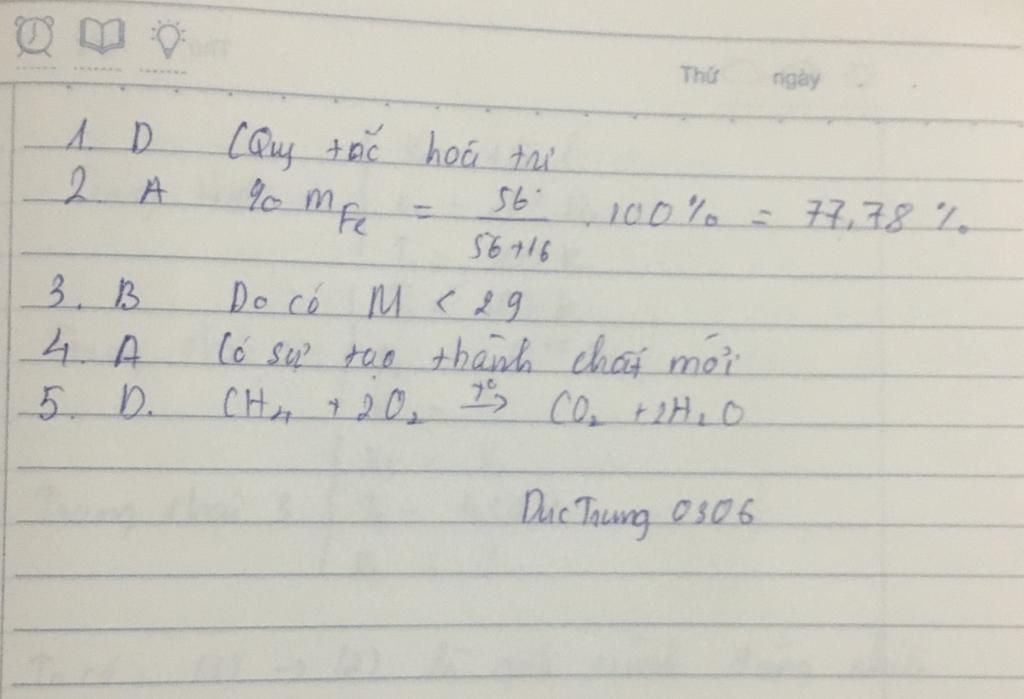 Thứ ngày
1. D (Quy tắc hoá trị
2. A % mFe = 56 / 56+16 . 100% = 77,78 %.
3. B Do có M < 29
4. A Có sự tạo thành chất mới
5. D. CH4 + 2O2 t° → CO2 + 2H2O
DucTrung 0306